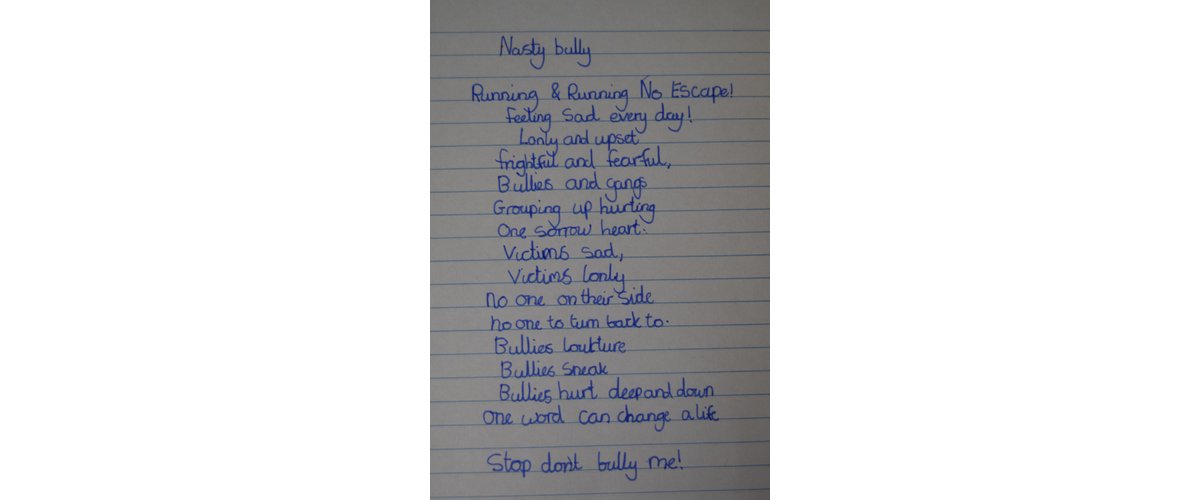 Nasty bully
Running & Running No Escape!
Feeling Sad every day!
Lonly and upset
frightful and fearful,
Bullies and gangs
Grouping up hurting
One sorrow heart.
Victims sad,
Victims lonly
no one on their side
no one to turn back to.
Bullies
Bullies sneak
Bullies hurt deep and down
One word can change a life
Stop don't bully me!